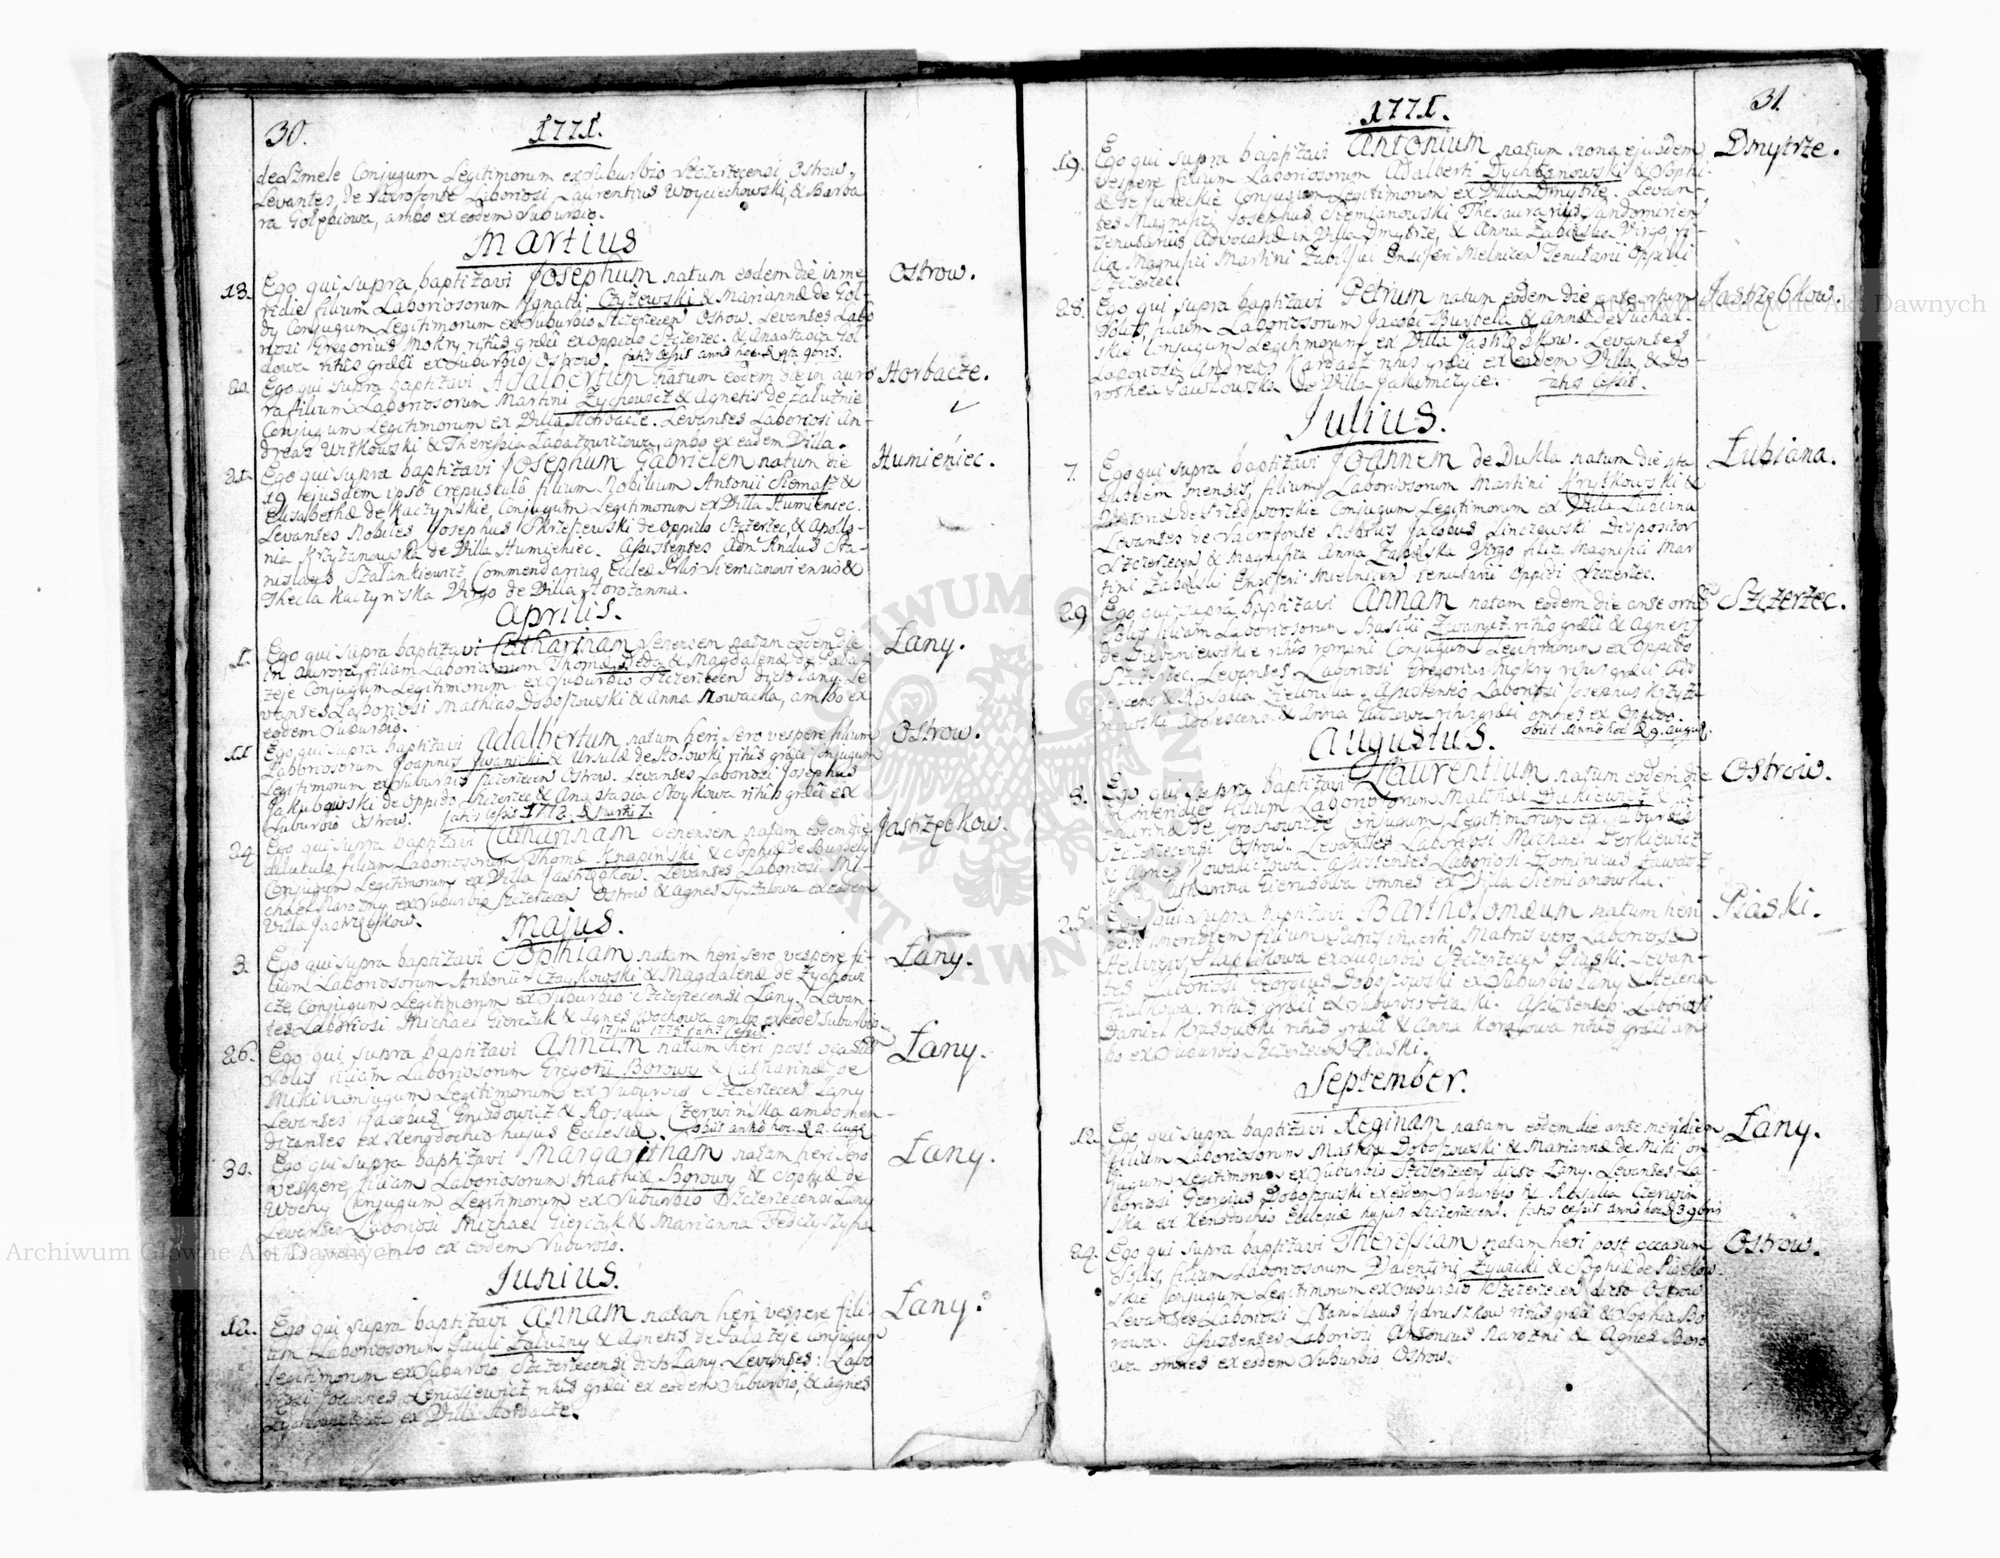 30.
1771.
de Szmele Conjugum Legitimorum ex Suburbio Szczerzecensi Ostrow,
Levantes de Sacrofonte Laboriosi Laurentius Woyciechowski, & Barba-
ra Gołębiowa, ambo ex eodem Suburbio.
Martius
13. Ego qui supra baptizavi Josephum natum eodem die in me-
ridie filium Laboriosorum Ignatii Czyżowski & Mariannæ de Goł-
dy Conjugum Legitimorum ex Suburbio Szczerzecen Ostrow. Levantes Labo-
riosi Gregorius Mokry ritus græci ex oppido Szczerzec & Anastasia Goł-
dowa ritus græci ex Suburbio Ostrow.
Ostrow.
20. Ego qui supra baptizavi Adalbertum natum eodem die in auro-
ra filium Laboriosorum Martini Zychowicz & Agnetis de Załuznie
Conjugum Legitimorum ex Villa Horbacze. Levantes Laboriosi An-
dreas Witkowski & Theressia ambo ex eadem Villa.
Horbacze.
21. Ego qui supra baptizavi Josephum Gabrielem natum die
19 ejusdem ipsô crepusculô filium Nobilium Antonii Siemasz &
Elisabethæ de Kaczynskie Conjugum Legitimorum ex Villa Humieniec.
Levantes Nobiles Josephus Skrzeszewski de oppido Szczerzec, & Apollo-
nia Krzyżanowska de Villa Humieniec. Assistentes Adm Rndus Sta-
nislaus Szalankiewicz Commendarius Eccles
Thecla Kaczynska Virgo de Villa Horożanna.
Humieniec.
Aprilis.
1. Ego qui supra baptizavi Catharinam Senensem natam eodem die
in aurora, filiam Laboriosorum Thomæ Deda & Magdalenæ de Pała-
zeje Conjugum Legitimorum ex Suburbio Szczerzecen dicto Łany. Le-
vantes Laboriosi Mathias Doboszowski & Anna Nowacka, ambo ex
eodem Suburbio.
Łany.
11 Ego qui supra baptizavi Adalbertum natum heri sero vespere filium
Laboriosorum Joannis Iwanicki & Ursulæ de Stołowski ritus græci Conjugum
Legitimorum ex Suburbio Szczerzecen Ostrow. Levantes Laboriosi Josephus
Jakubowski de Oppido Szczerzec & Anastasia Stoykowa ritus græci ex
Suburbio Ostrow.
Ostrow.
24 Ego qui supra baptizavi Catharinam Senensem natam eodem die
diluculo filiam Laboriosorum Thomæ Knapiński & Sophiæ de Burdely
Conjugum Legitimorum ex Villa Jastrzębkow. Levantes Laboriosi Mi-
chael Narozny ex Suburbio Szczerzecen Ostrow & Agnes Tysztalowa ex eadem
Villa Jastrzębkow.
Jastrzębkow.
Majus.
3. Ego qui supra baptizavi Sophiam natam heri sero vespere fi-
liam Laboriosorum Antonii Czaykowski & Magdalenæ de Zychowi-
cze Conjugum Legitimorum ex Suburbio Szczerzecensi Łany. Levan-
tes Laboriosi Michael Gierczuk & Agnes Wochowa ambo ex eodem Suburbio.
Łany.
26. Ego qui supra baptizavi Annam natam heri post ocasum
Solis filiam Laboriosorum Gregorii Borowy & Catharinæ de
Miki Conjugum Legitimorum ex Suburbio Szczerzecen Łany
Levantes Jacobus Gniadowicz & Rosalia Czerwińska ambo men-
dicantes ex Xenodochio hujus Ecclesiæ. obiit anno hoc. d 2. aug.
Łany.
30. Ego qui supra baptizavi Margaritham natam heri sero
vespere, filiam Laboriosorum Mathiæ Borowy & Sophiæ de
Wochy Conjugum Legitimorum ex Suburbio Szczerzecensi Łany
Levantes Laboriosi Michael Gierczuk & Marianna Fedczyszyna
ritus græci ambo ex eodem Suburbio.
Łany.
Junius.
12. Ego qui supra baptizavi Annam natam heri vespere fili-
am Laboriosorum Pauli Załuzny & Agnetis de Pałazeje Conjugum
Legitimorum ex Suburbio Szczerzecensi dicto Łany. Levantes: Labo-
riosi Joannes ritus græci ex eodem Suburbio, & Agnes
ex Villa Horbacze.
Łany.
31.
1771.
19. Ego qui supra baptizavi Antonium natum nona ejusdem
vespere filium Laboriosorum Adalberti Dychtanowski & Sophi-
æ de Jureckie Conjugum Legitimorum ex Villa Dmytrze. Levan-
tes Magnifici Josephus Siemianowski Thesaurarius Sandomirien
Tenutarius Advocatiæ in Villa Dmytrze, & Anna Zabielska Virgo fi-
lia Magnifici Martini Zabielski Ensiferi Mielnicen Tenutarii Oppidi
Szczerzec.
Dmytrze.
28. Ego qui supra baptizavi Petrum natum eodem die ante ortum
Solis, filium Laboriosorum Jacobi Burdela & Annæ de Suchac-
skie Conjugum Legitimorum ex Villa Jastrzębkow. Levantes
Laboriosi Andreas Kardasz ritus græci ex eadem Villa & Do-
rothea Pawłowska de Villa Jakimczyce.
Jastrzębkow.
Julius.
7. Ego qui supra baptizavi Joannem de Dukla natum die 4ta
ejusdem mensis, filium Laboriosorum Martini Krytkowski &
Victoriæ de Przedworskie Conjugum Legitimorum ex Villa Lubiana
Levantes de Sacrofonte Nobilis Jacobus Linczewski Dispositor
Szczerzecen & Magnifica Anna Zabielska Virgo filia Magnifici Mar-
tini Zabielski Ensiferi Mielnicen Tenutarii Oppidi Szczerzec.
Łubiana.
29 Ego qui supra baptizavi Annam natam eodem die ante ortum
Solis filiam Laboriosorum Basilii Iwanycz ritus græci & Agnetis
de Dubaniewskie ritus romani Conjugum Legitimorum ex Oppido
Szczerzec. Levantes Laboriosi Gregorius Mokry ritus græci Ado-
lescens & Rosalia Zielinska. Assistentes Laboriosi Josephus Krzyża-
nowski Adolescens & Anna ritus græci omnes ex Oppido.
obiit Anno hoc d 9. August.
Szczerzec.
Augustus.
8. Ego qui supra baptizavi Laurentium natum eodem die
in meridie filium Laboriosorum Matthæi Dukiewicz & Ca-
tharinæ de Grochowicze Conjugum Legitimorum ex Suburbio
Szczerzecensi Ostrow. Levantes Laboriosi Michael Derkiewicz
& Agnes Kowalczowa. Assistentes Laboriosi Dominicus
& Catharina Gierusowa omnes ex Villa Siemianowka.
Ostrow.
25. Ego qui supra baptizavi Bartholomæum natum heri
post meridiem filium Patris incerti, Matris vero Laboriosæ
Hedvigis Szaplikowa ex Suburbio Szczerzecen Piaski. Levan-
tes Laboriosi Georgius Doboszowski ex Suburbio Łany & Helena
ritus græci ex Suburbio Piaski. Assistentes Laboriosi
Daniel Krasowski ritus græci & Anna Korolowa ritus græci am-
bo ex Suburbio Szczerzecen Piaski.
Piaski.
September.
12. Ego qui supra baptizavi Reginam natam eodem die ante meridiem
filiam Laboriosorum Mathiæ Doboszowski & Mariannæ de Miki con-
jugum Legitimorum ex Suburbio Szczerzecen dicto Łany. Levantes La-
boriosi Georgius Doboszowski ex eodem Suburbio & Rosalia Czerwin-
ska ex Xenodochio Ecclesiæ hujus Szczerzecen.
Łany.
24. Ego qui supra baptizavi Theressiam natam heri post occasum
Solis, filiam Laboriosorum Valentini Zywicki & Sophiæ de Piatkow-
skie Conjugum Legitimorum ex Suburbio Szczerzecen dicto Ostrow
Levantes Laboriosi Stanislaus Jadruszkow ritus græci & Sophia Bo-
rowa. Assistentes Laboriosi Antonius Narozni & Agnes Boro-
wa omnes ex eodem Suburbio Ostrow.
Ostrow.
Archiwum Główne Akt Dawnych
Archiwum Główne Akt Dawnych
ARCHIWUM GŁÓWNE AKT DAWNYCH